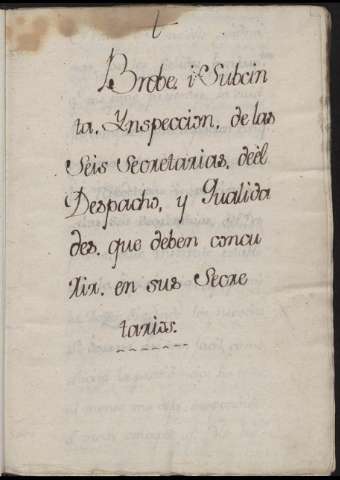 Brebe. i Subcin
ta. Ynspeccion. de las
Seis Secretarias. deèl
Despacho, y Qualida
des. que deben concu
rrir. en sus Secre
tarias.